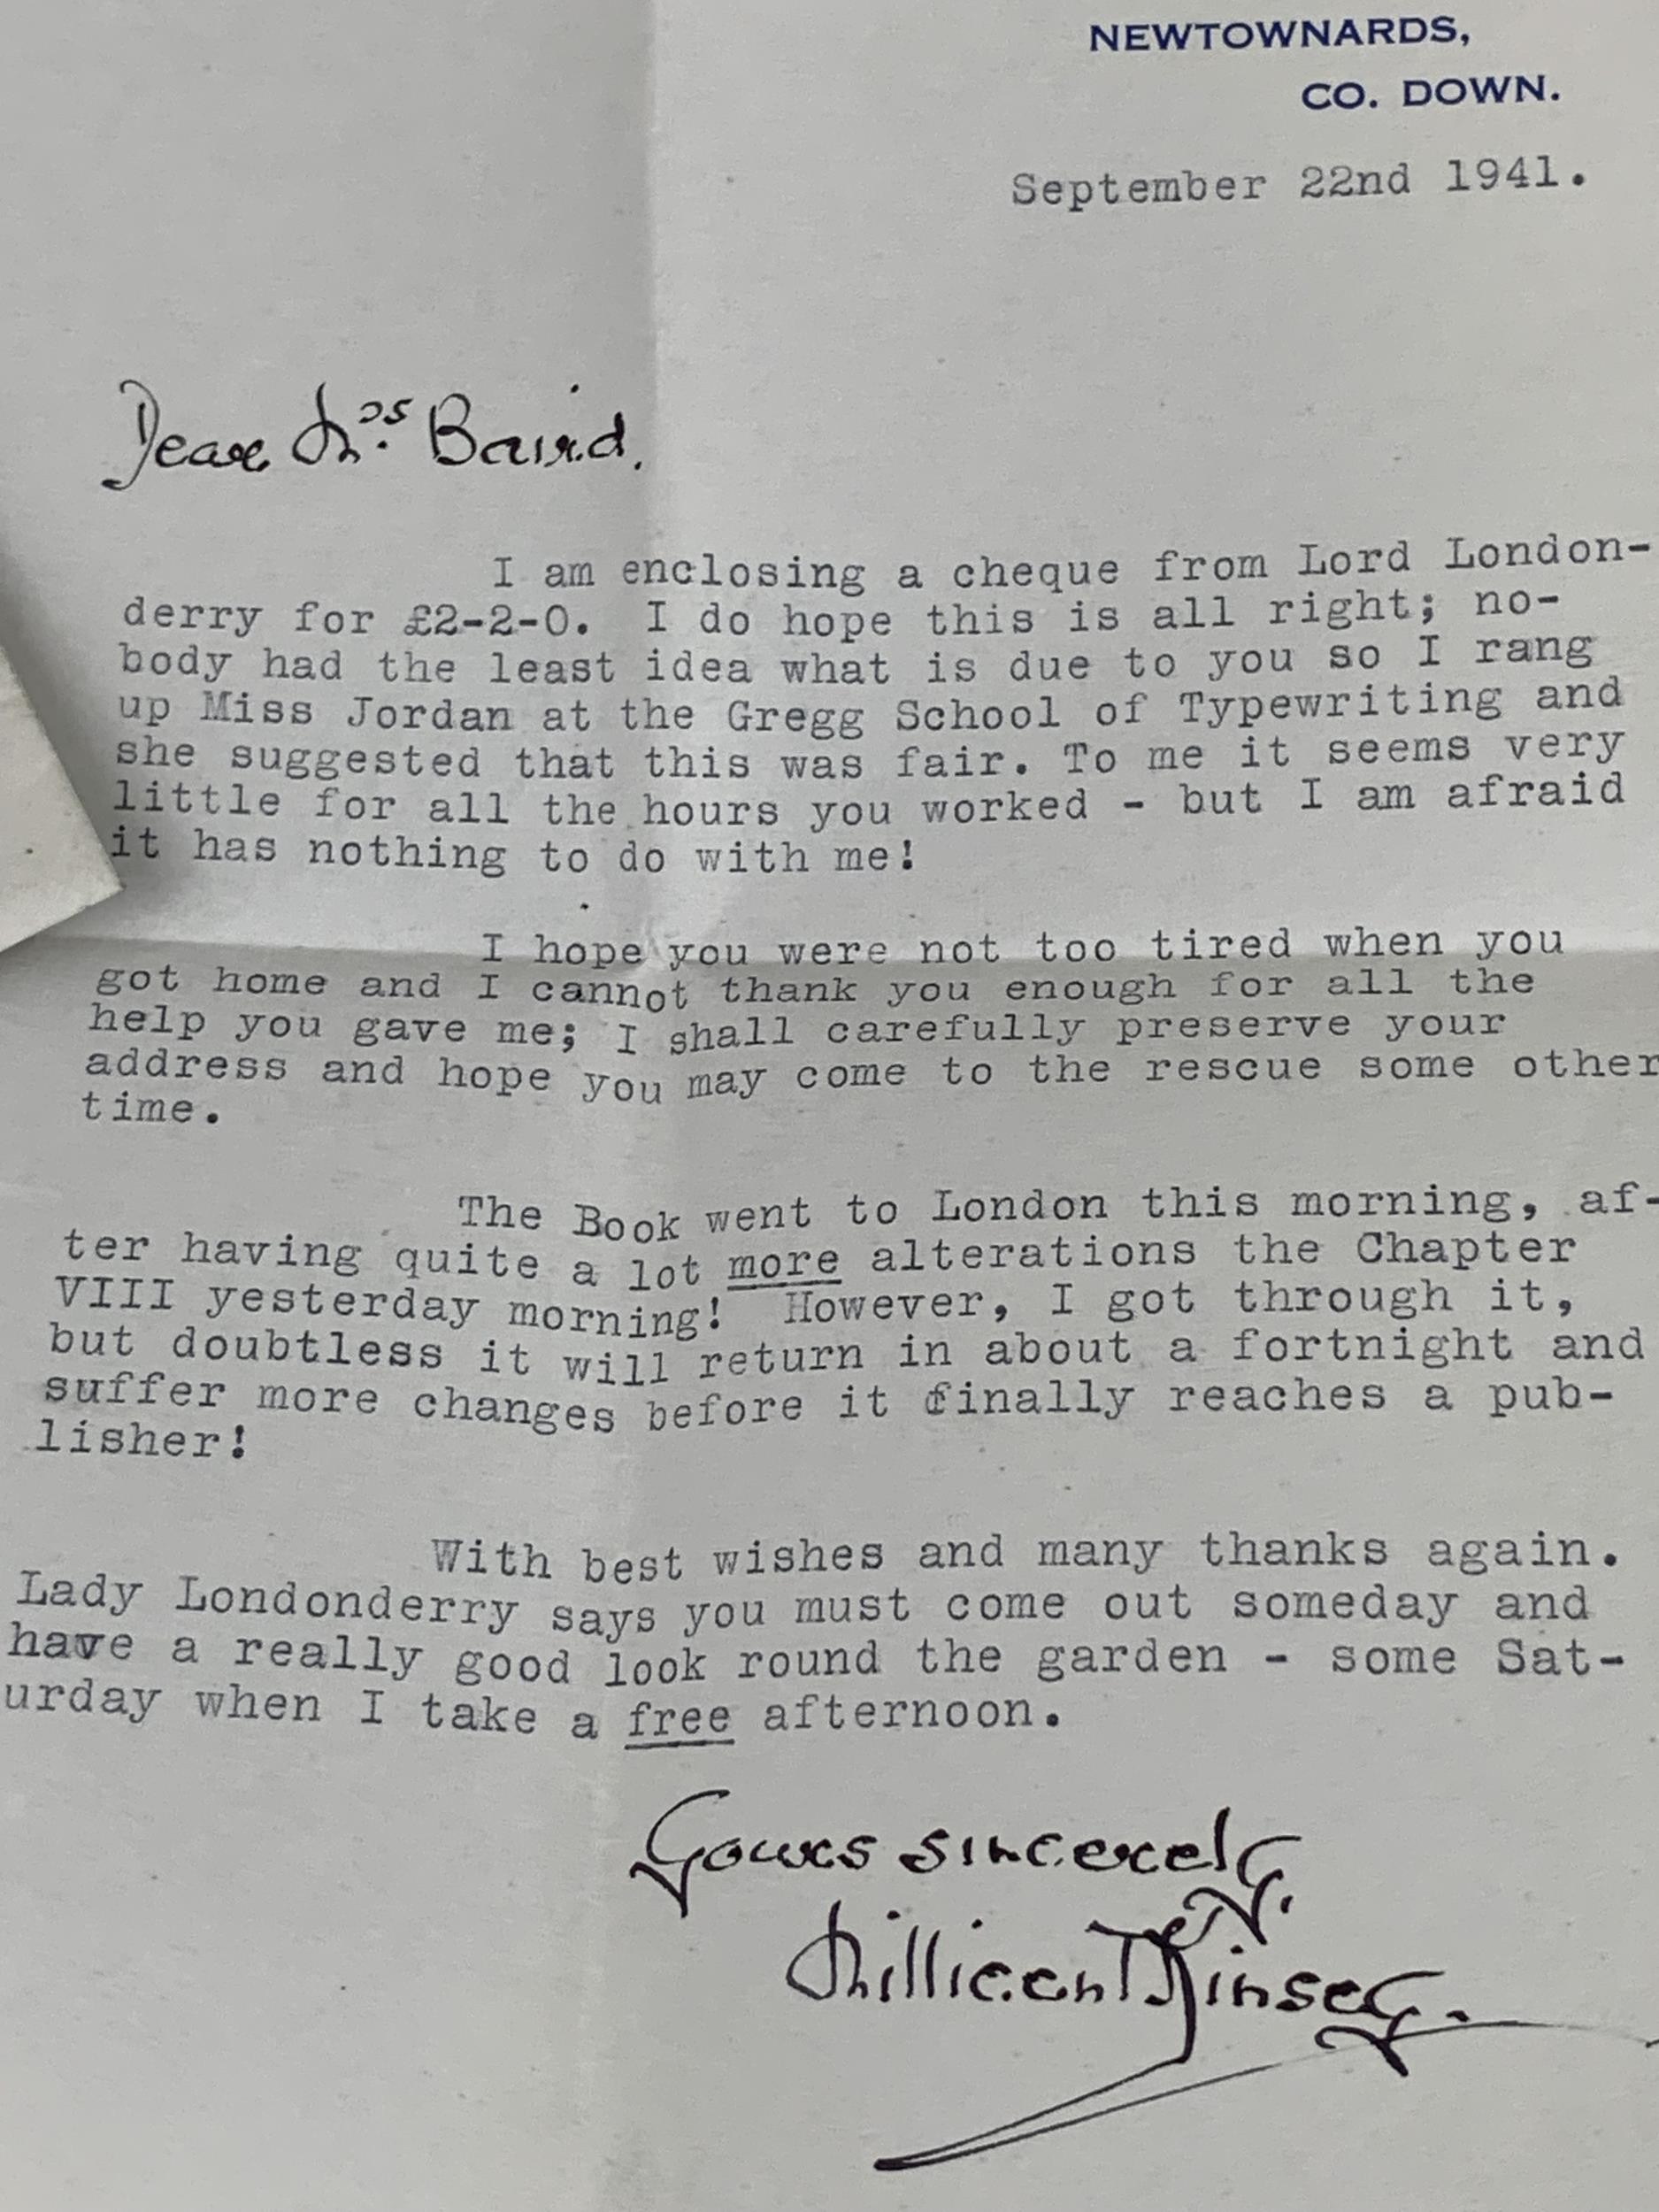 NEWTOWNARDS,
CO. DOWN.
September 22nd 1941.
Dear Mrs. Baird,
I am enclosing a cheque from Lord London-
derry for £2-2-0. I do hope this is all right; no-
body had the least idea what is due to you so I rang
up Miss Jordan at the Gregg School of Typewriting and
she suggested that this was fair. To me it seems very
little for all the hours you worked - but I am afraid
it has nothing to do with me!
I hope you were not too tired when you
got home and I cannot thank you enough for all the
help you gave me; I shall carefully preserve your
address and hope you may come to the rescue some other
time.
The Book went to London this morning, af-
ter having quite a lot more alterations the Chapter
VIII yesterday morning! However, I got through it,
but doubtless it will return in about a fortnight and
suffer more changes before it finally reaches a pub-
lisher!
With best wishes and many thanks again.
Lady Londonderry says you must come out someday and
have a really good look round the garden - some Sat-
urday when I take a free afternoon.
Yours sincerely,
Millicent Kinsey.